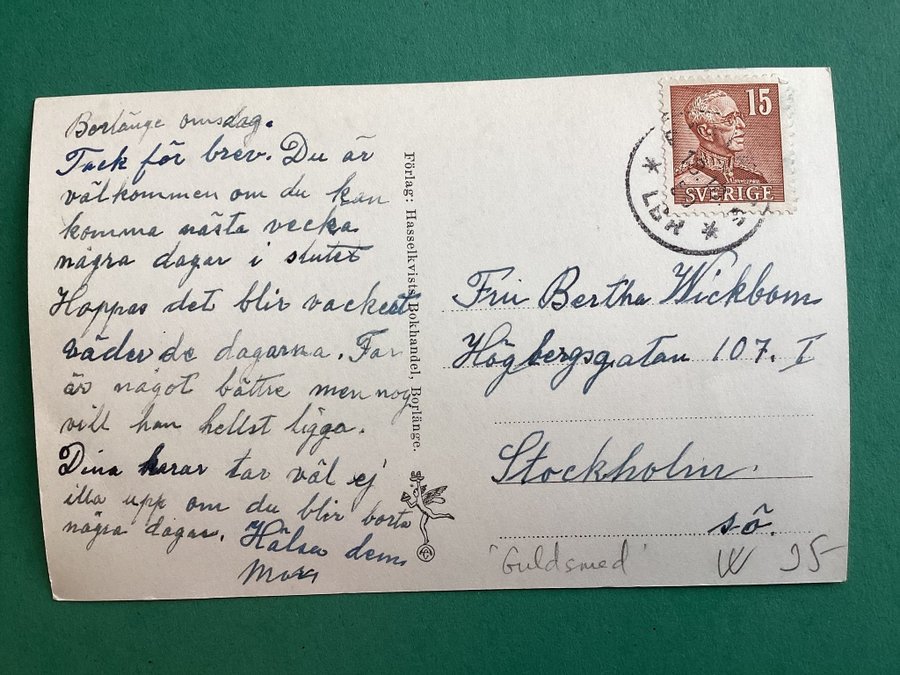 Borlänge onsdag.
Tack för brev. Du är
välkommen om du kan
komma nästa vecka
några dagar i slutet
Hoppas det blir vackert
väder de dagarna. Far
är något bättre men nog
vill han hellst ligga.
Dina karar tar väl ej
illa upp om du blir borta
några dagar. Hälsa dem
Mor
Förlag: Hasselkvists Bokhandel, Borlänge.
15
SVERIGE
Fru Bertha Wickbom
Högbergsgatan 107. I
Stockholm.
sö.
'Guldsmed' W 25-